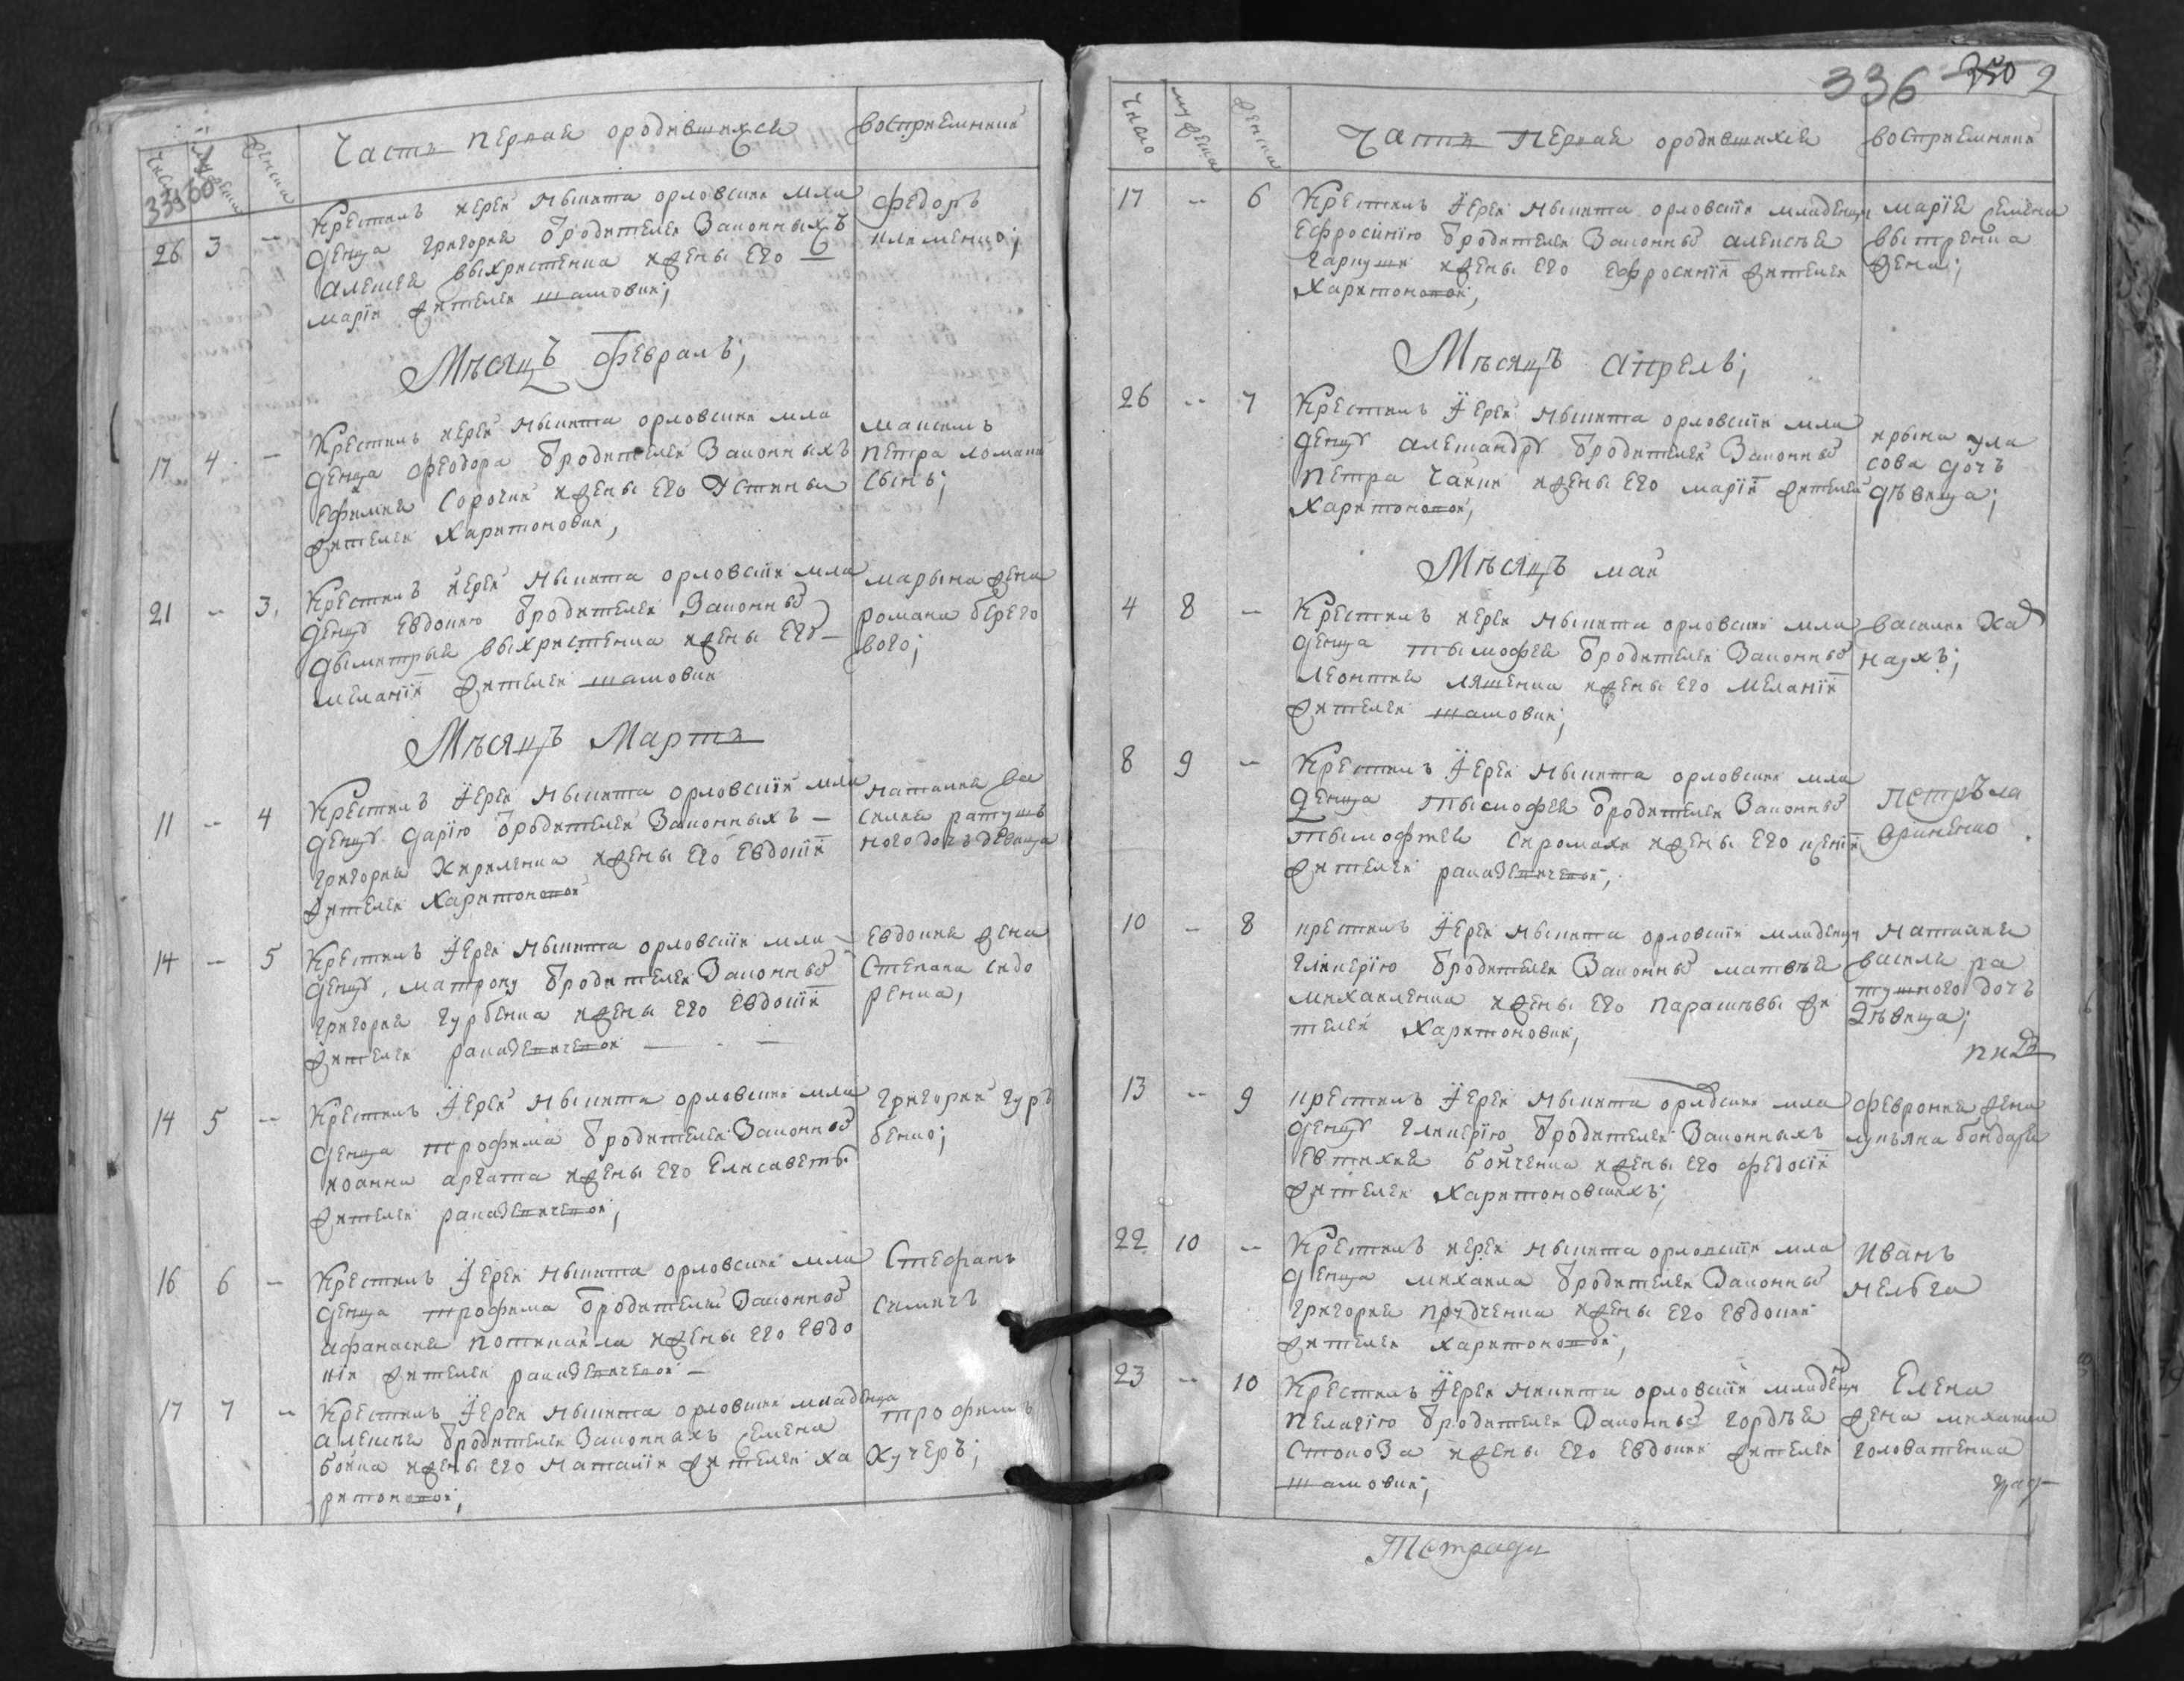 Число
Женска
Часть Первая ородившихся
восприемники
26 3 –
Крестилъ иерей Мыкита орловский мла
денца григория Ѿродителей Законныхъ
алексея выхристенка иЖены Его –
марїи Жителей шамовки;
Федоръ
клименко;
Мѣсяцъ Февраль;
17 4 –
Крестилъ иерей Мыкита орловский мла
денца Феодора Ѿродителей Законныхъ
Ефимия Сорочки иЖены Его Устины
Жителей Харитоновки,
Максимъ
петра ломаки
Сынъ;
21 – 3
Крестилъ иерей Мыкита орловскїи мла
денцу Евдокию Ѿродителей Законныхъ
дымитрыя выхристенка иЖены Его –
меланїи Жителей шамовки
марына Жена
романа берего
вого;
Мѣсяцъ Мартъ
11 – 4
Крестилъ Їерей Мыкита орловскїи мла
денцу Дарїю Ѿродителей Законныхъ –
григория Кириленка иЖены Его Евдокїи
Жителей Харитоновки
Наталия ва
силия ратушъ
ного дочъ дѣвица
14 – 5
Крестилъ Їерей Мыкита орловскїи мла
денцу, матрону Ѿродителей Законныхъ
григория гурбенка иЖены Его Евдокїи
Жителей ракиЗенчевки –
Евдокия Жена
Степана Сидо
ренка,
14 5 –
Крестилъ Їерей Мыкита орловский мла
денца трофима Ѿродителей Законныхъ
иоанна аргата иЖены Его Елисаветы
Жителей ракиЗенчевки;
григорий гуръ
бенко;
16 6 –
Крестилъ Їерей Мыкита орловский мла
денца трофима Ѿродителей Законныхъ
афанасия потикайла иЖены Его Евдо
кїи Жителей ракиЗенчевки –
Стефанъ
Симичъ
17 7 –
Крестилъ Їерей Мыкита орловский младенца
алексѣя Ѿродителей Законныхъ Семена
бойка иЖены Его Наталїи Жителей Ха
ритоновки;
трофимъ
Кучеръ;
336 350 2
Число
мужеска
Женска
Часть Первая ородившихся
восприемники
17 – 6
Крестилъ Їерей Мыкита орловскїи младенцу
Ефросинїю Ѿродителей Законныхъ алексѣя
гаркуши иЖены Его Ефросинїи Жителей
Харитоновки;
марїя Семена
вытренка
Жена;
Мѣсяцъ Апрель;
26 – 7
Крестилъ Їерей Мыкита орловскїи мла
денцу алеѯандру Ѿродителей Законныхъ
петра Чайки иЖены Его марїи Жителей
Харитоновки,
ирына ула
сова дочъ
дѣвица;
Мѣсяцъ май
4 8 –
Крестилъ иерей Мыкита орловский мла
денца тымофея Ѿродителей Законныхъ
леонтия ляшенка иЖены Его Меланїи
Жителей шамовки;
василий
наухъ;
8 9 –
Крестилъ Їерей Мыкита орловский мла
денца тымофея Ѿродителей Законныхъ
тымофтея Скромахи иЖены Его ксенїи
Жителей ракиЗенчевки,
Петръ ла
вриненко
10 – 8
крестилъ Їерей Мыкита орловскїи младенцу
гликерїю Ѿродителей Законныхъ матвѣя
михайленка иЖены Его парасѣвы Жи
телей Харитоновки;
Наталия
василя ра
тушного дочъ
дѣвица;
13 – 9
крестилъ Їерей Мыкита орловский мла
денцу гликерїю, Ѿродителей Законныхъ
Евтихия бойченка иЖены Его Федосїи
Жителей Харитоновскихъ;
феврония Жена
лукъяна бондаря
22 10 –
Крестилъ иерей Мыкита орловскїи мла
денца михаила Ѿродителей Законныхъ
григория прудченка иЖены Его Евдокии
Жителей Харитоновки;
Иванъ
Мельга
23 – 10
Крестилъ Їерей Микита орловскїи младенцу
пелагїю Ѿродителей Законныхъ гордѣя
СтокоЗа иЖены Его Евдокии Жителей
шамовки;
Елена
Жена михаила
головатенка
Тетради